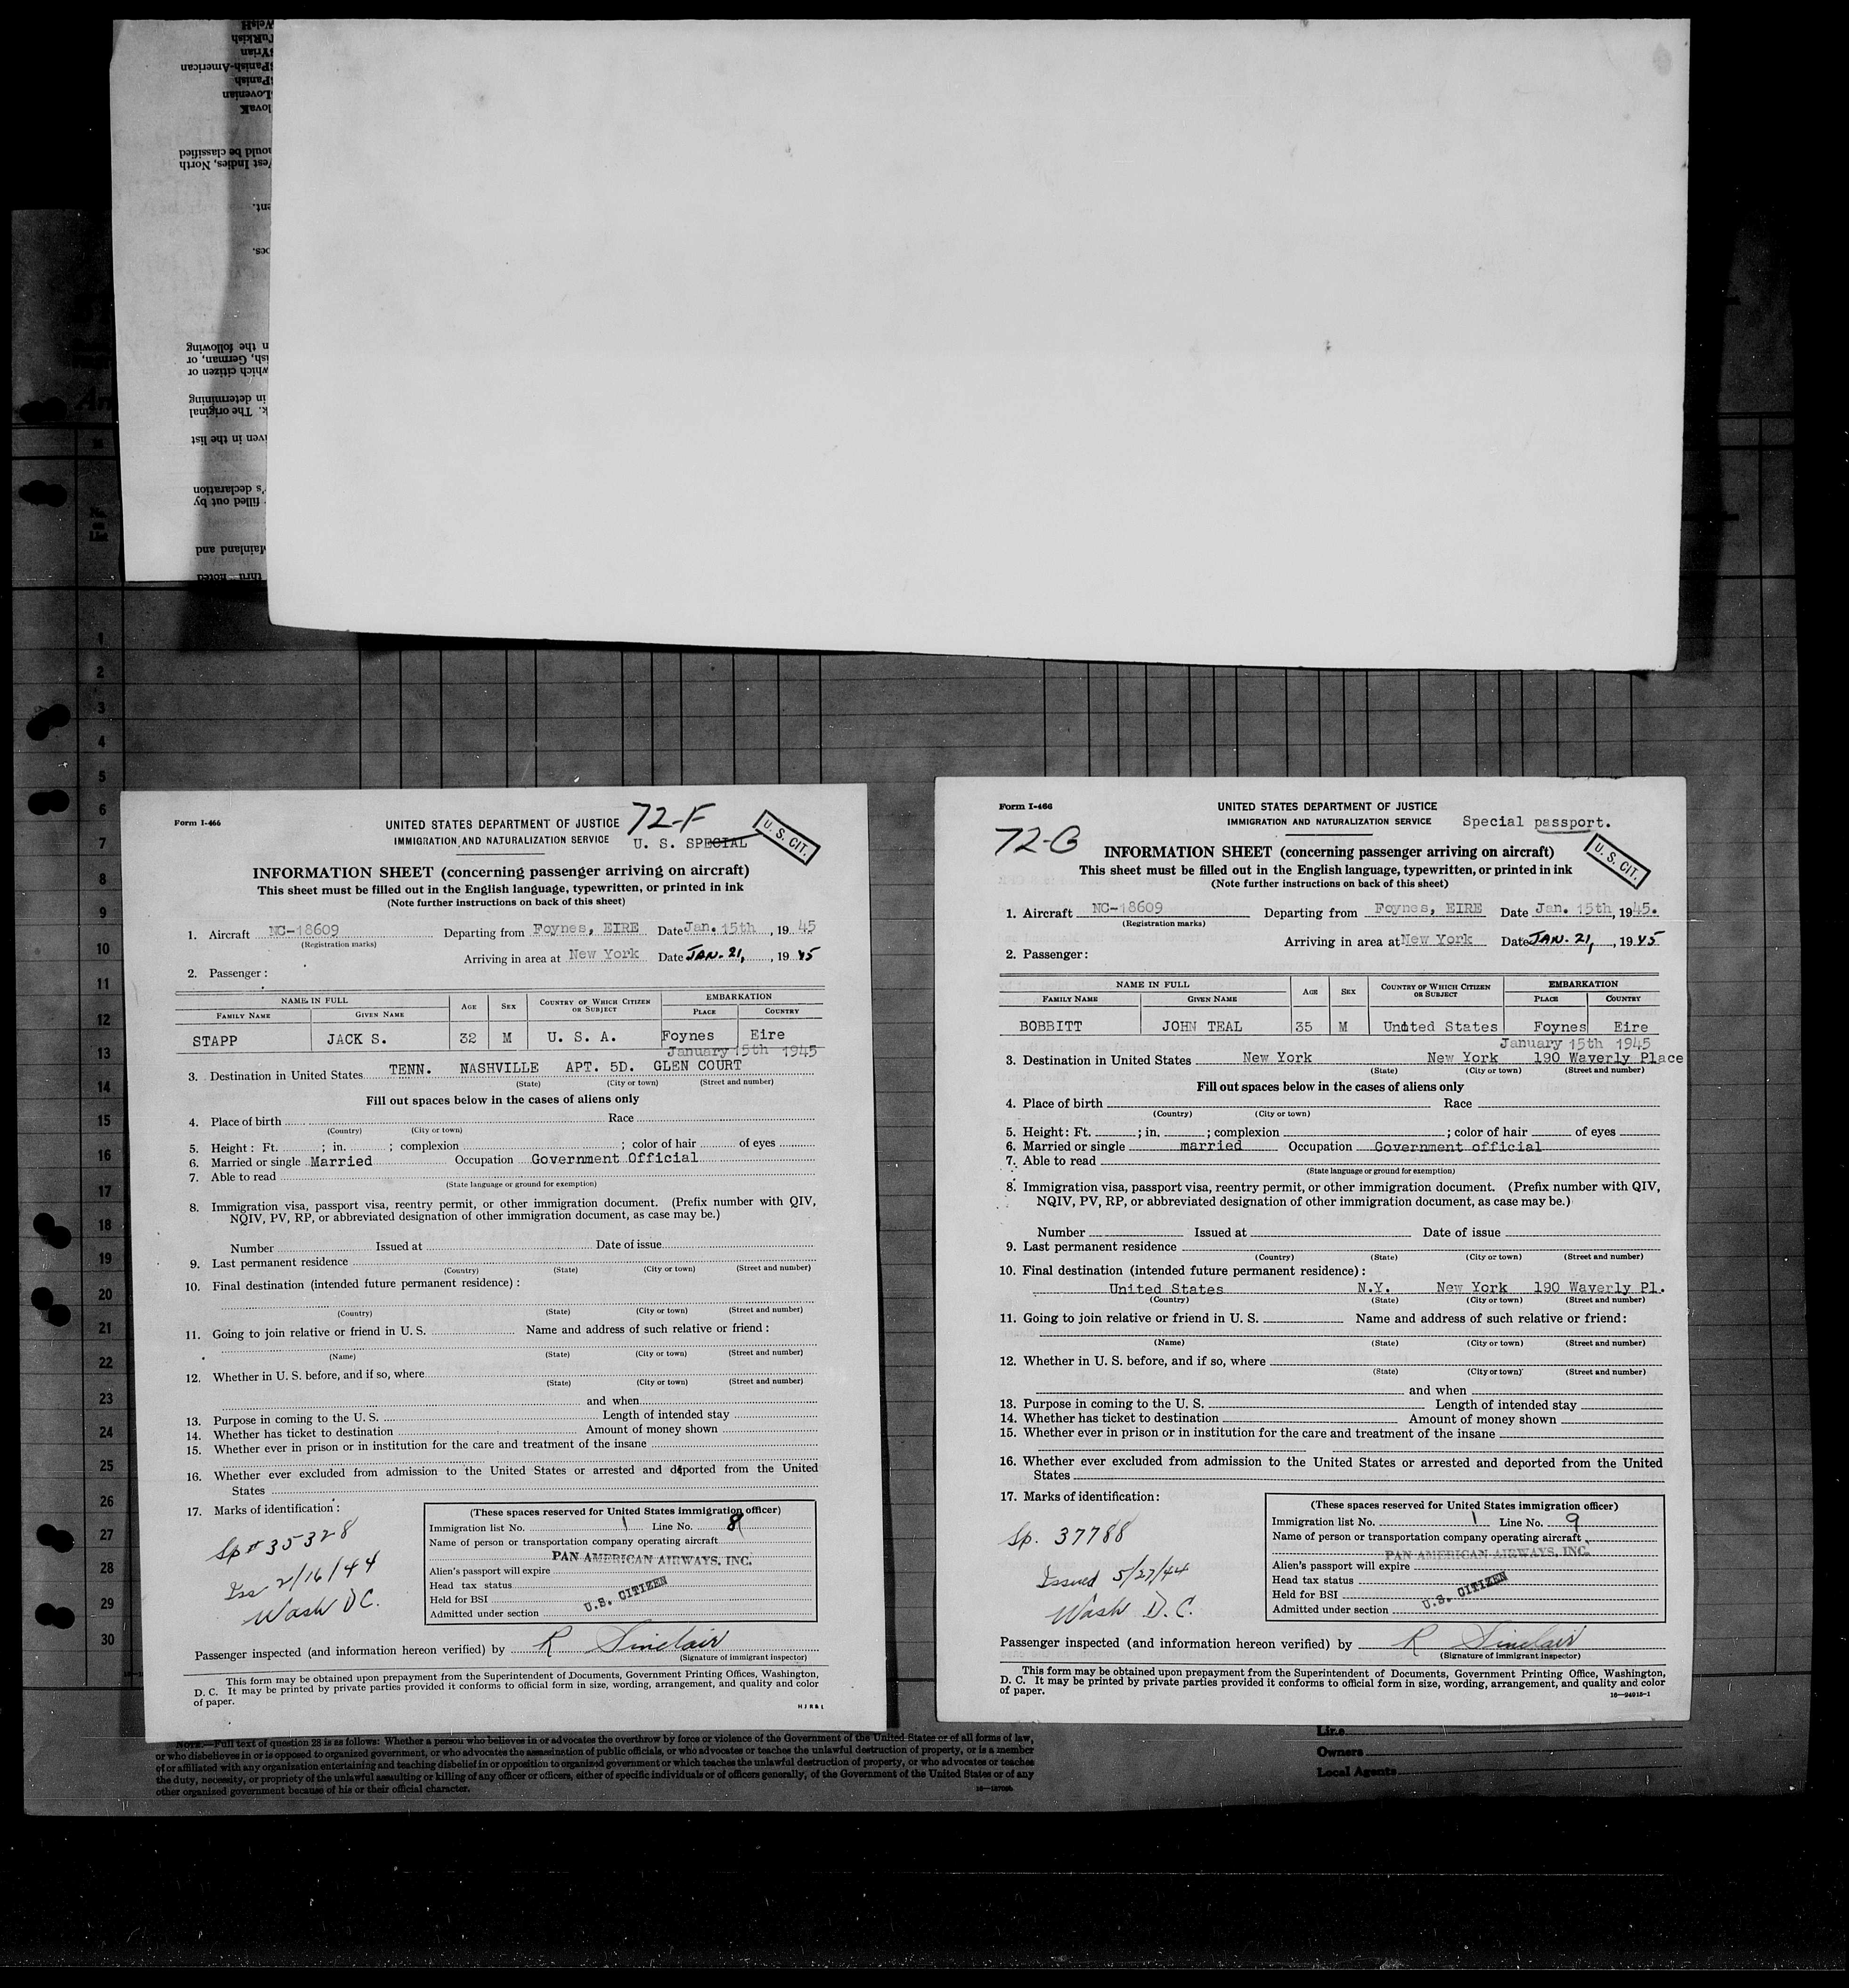 WelsH
TuRkish
SYrian
SPanish-American
SPanish
SLovenian
lovaK
hould be classified
est Indies, North
ent.
n the following
ish, German, or
which citizen or
in determining
k. The original
iven in the list
's declaration
filled out by
Mainland and
thru noted
No.
on
List
1
2
3
4
5
6
7
8
9
10
11
12
13
14
15
16
17
18
19
20
21
22
23
24
25
26
27
28
29
30
Form I-466
UNITED STATES DEPARTMENT OF JUSTICE 72-F
IMMIGRATION AND NATURALIZATION SERVICE U. S. SPECIAL
U. S. CIT.
INFORMATION SHEET (concerning passenger arriving on aircraft)
This sheet must be filled out in the English language, typewritten, or printed in ink
(Note further instructions on back of this sheet)
1. Aircraft NC-18609 Departing from Foynes, EIRE Date Jan. 15th, 19 45
(Registration marks)
Arriving in area at New York Date JAN. 21, 19 45
2. Passenger:
NAME IN FULL AGE SEX COUNTRY OF WHICH CITIZEN OR SUBJECT EMBARKATION
FAMILY NAME GIVEN NAME PLACE COUNTRY
STAPP JACK S. 32 M U. S. A. Foynes Eire
January 15th 1945
3. Destination in United States TENN. NASHVILLE APT. 5D. GLEN COURT
(State) (City or town) (Street and number)
Fill out spaces below in the cases of aliens only
4. Place of birth Race
(Country) (City or town)
5. Height: Ft. ; in. ; complexion ; color of hair of eyes
6. Married or single Married Occupation Government Official
7. Able to read
(State language or ground for exemption)
8. Immigration visa, passport visa, reentry permit, or other immigration document. (Prefix number with QIV,
NQIV, PV, RP, or abbreviated designation of other immigration document, as case may be.)
Number Issued at Date of issue
9. Last permanent residence
(Country) (State) (City or town) (Street and number)
10. Final destination (intended future permanent residence):
(Country) (State) (City or town) (Street and number)
11. Going to join relative or friend in U. S. Name and address of such relative or friend:
(Name) (State) (City or town) (Street and number)
12. Whether in U. S. before, and if so, where
(State) (City or town) (Street and number)
and when
13. Purpose in coming to the U. S. Length of intended stay
14. Whether has ticket to destination Amount of money shown
15. Whether ever in prison or in institution for the care and treatment of the insane
16. Whether ever excluded from admission to the United States or arrested and deported from the United
States
17. Marks of identification:
Sp # 35328
Iss 2/16/44
Wash DC.
(These spaces reserved for United States immigration officer)
Immigration list No. 1 Line No. 8
Name of person or transportation company operating aircraft
PAN AMERICAN AIRWAYS, INC.
Alien's passport will expire
Head tax status
Held for BSI U.S. CITIZEN
Admitted under section
Passenger inspected (and information hereon verified) by R Sinclair
(Signature of immigrant inspector)
This form may be obtained upon prepayment from the Superintendent of Documents, Government Printing Offices, Washington,
D. C. It may be printed by private parties provided it conforms to official form in size, wording, arrangement, and quality and color
of paper.
HJR&L
Form I-466
UNITED STATES DEPARTMENT OF JUSTICE
IMMIGRATION AND NATURALIZATION SERVICE Special passport.
72-G
U. S. CIT.
INFORMATION SHEET (concerning passenger arriving on aircraft)
This sheet must be filled out in the English language, typewritten, or printed in ink
(Note further instructions on back of this sheet)
1. Aircraft NC-18609 Departing from Foynes, EIRE Date Jan. 15th, 1945.
(Registration marks)
Arriving in area at New York Date JAN. 21, 1945
2. Passenger:
NAME IN FULL AGE SEX COUNTRY OF WHICH CITIZEN OR SUBJECT EMBARKATION
FAMILY NAME GIVEN NAME PLACE COUNTRY
BOBBITT JOHN TEAL 35 M United States Foynes Eire
January 15th 1945
3. Destination in United States New York New York 190 Waverly Place
(State) (City or town) (Street and number)
Fill out spaces below in the cases of aliens only
4. Place of birth Race
(Country) (City or town)
5. Height: Ft. ; in. ; complexion ; color of hair of eyes
6. Married or single married Occupation Government official
7. Able to read
(State language or ground for exemption)
8. Immigration visa, passport visa, reentry permit, or other immigration document. (Prefix number with QIV,
NQIV, PV, RP, or abbreviated designation of other immigration document, as case may be.)
Number Issued at Date of issue
9. Last permanent residence
(Country) (State) (City or town) (Street and number)
10. Final destination (intended future permanent residence):
United States N.Y. New York 190 Waverly Pl.
(Country) (State) (City or town) (Street and number)
11. Going to join relative or friend in U. S. Name and address of such relative or friend:
(Name) (State) (City or town) (Street and number)
12. Whether in U. S. before, and if so, where
(State) (City or town) (Street and number)
and when
13. Purpose in coming to the U. S. Length of intended stay
14. Whether has ticket to destination Amount of money shown
15. Whether ever in prison or in institution for the care and treatment of the insane
16. Whether ever excluded from admission to the United States or arrested and deported from the United
States
17. Marks of identification:
Sp. 37788
Issued 5/27/44
Wash D.C.
(These spaces reserved for United States immigration officer)
Immigration list No. 1 Line No. 9
Name of person or transportation company operating aircraft
PAN AMERICAN AIRWAYS, INC.
Alien's passport will expire
Head tax status
Held for BSI U.S. CITIZEN
Admitted under section
Passenger inspected (and information hereon verified) by R Sinclair
(Signature of immigrant inspector)
This form may be obtained upon prepayment from the Superintendent of Documents, Government Printing Office, Washington,
D. C. It may be printed by private parties provided it conforms to official form in size, wording, arrangement, and quality and color
of paper.
16—24915-1
NOTE.—Full text of question 28 is as follows: Whether a person who believes in or advocates the overthrow by force or violence of the Government of the United States or of all forms of law,
or who disbelieves in or is opposed to organized government, or who advocates the assassination of public officials, or who advocates or teaches the unlawful destruction of property, or is a member
of or affiliated with any organization entertaining and teaching disbelief in or opposition to organized government or which teaches the unlawful destruction of property, or who advocates or teaches
the duty, necessity, or propriety of the unlawful assaulting or killing of any officer or officers, either of specific individuals or of officers generally, of the Government of the United States or of any
other organized government because of his or their official character.
Line
Owners
Local Agents